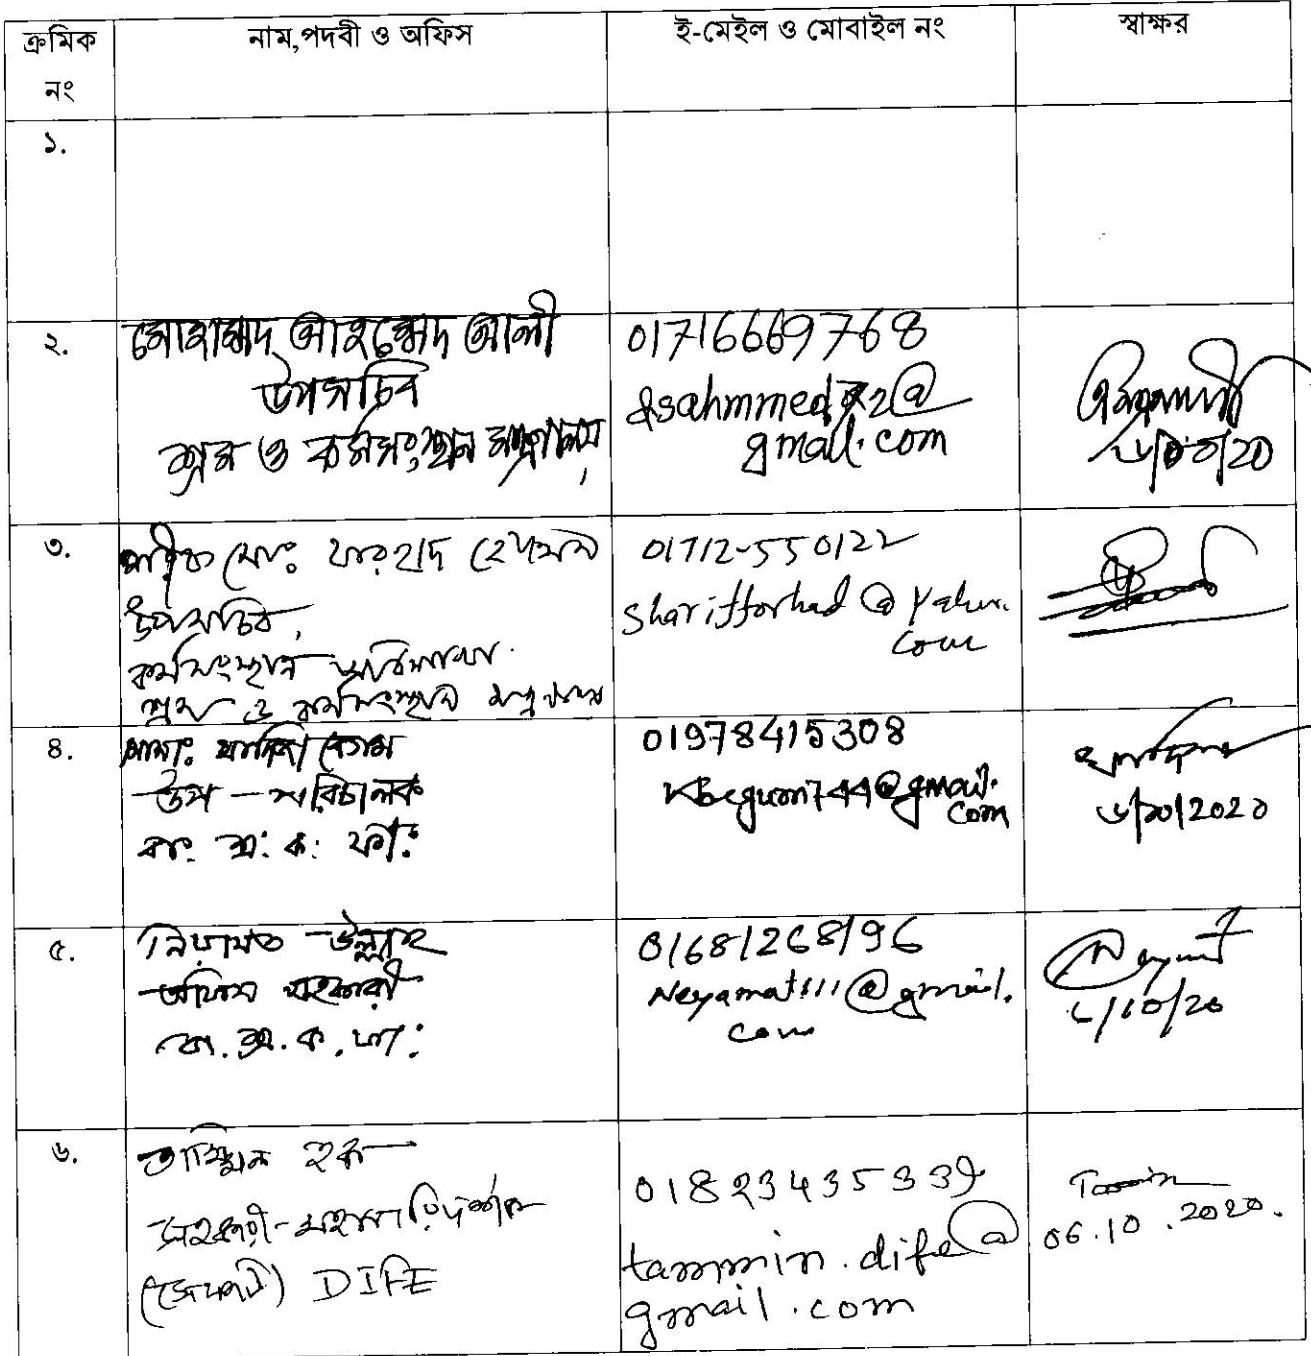 ক্রমিক নং
নাম,পদবী ও অফিস
ই-মেইল ও মোবাইল নং
স্বাক্ষর
১.
২.
মোহাম্মদ আহম্মেদ আলী
উপসচিব
শ্রম ও কর্মসংস্থান মন্ত্রণালয়
01716669768
@
gmail.com
৩.
শরীফ মোঃ ফরহাদ হোসেন
উপসচিব,
কর্মসংস্থান অধিশাখা
শ্রম ও কর্মসংস্থান মন্ত্রণালয়
01712-550122
sharifforhad@yahoo.
com
৪.
মোসাঃ খালিদা বেগম
উপ-পরিচালক
বাং. শ্র: ক: ফা:
01978415308
kbegum744@gmail.
com
৬/১০/2020
৫.
নিয়ামত উল্লাহ
অফিস সহকারী
বা.শ্র.ক.ফা:
01681268196
Neyamat111@gmail.
com
৬/10/20
৬.
হক
সহকারী-মহাপরিদর্শক
(সেফটি) DIFE
01823435339
tammin.dife@
gmail.com
06.10.2020.